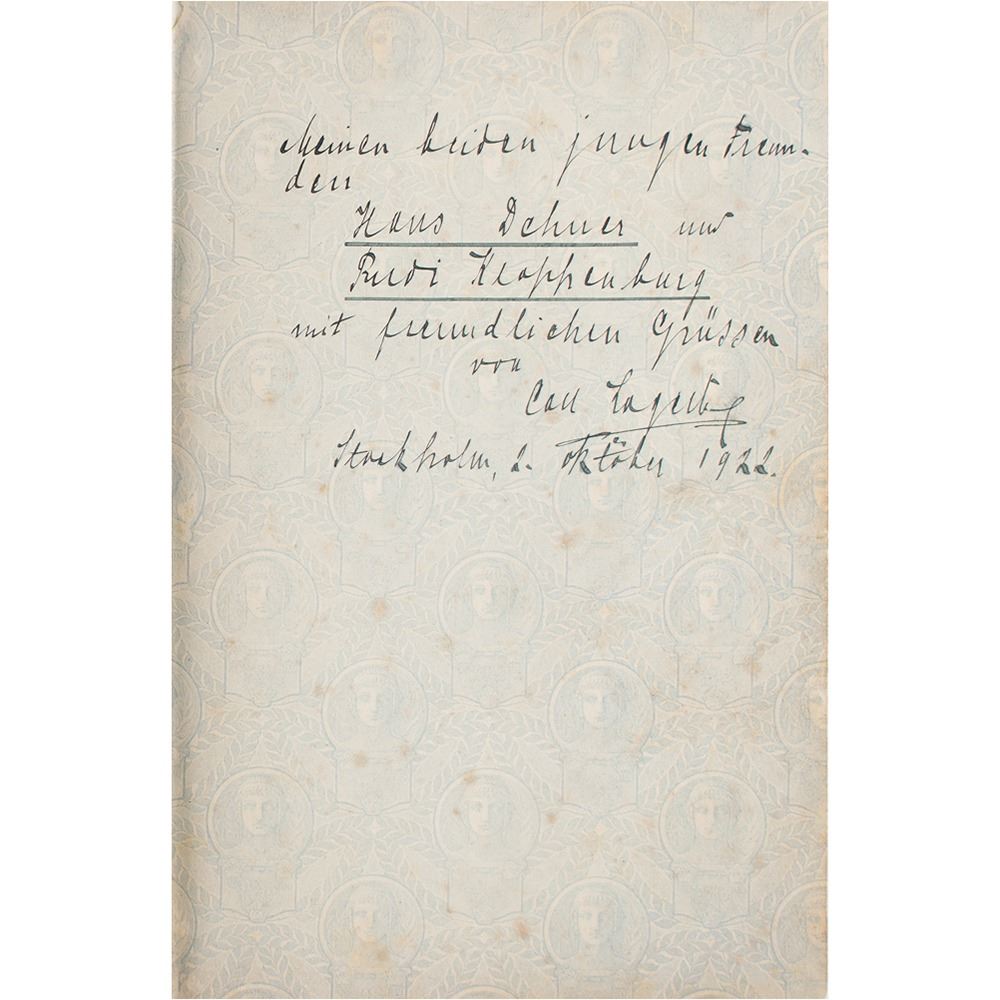 Meinen beiden jungen Freun-
den
Hans Dehner und
Rudi Kloppenburg
mit freundlichen Grüssen
von
Carl Lagerb
Stockholm, 2. Oktober 1922.